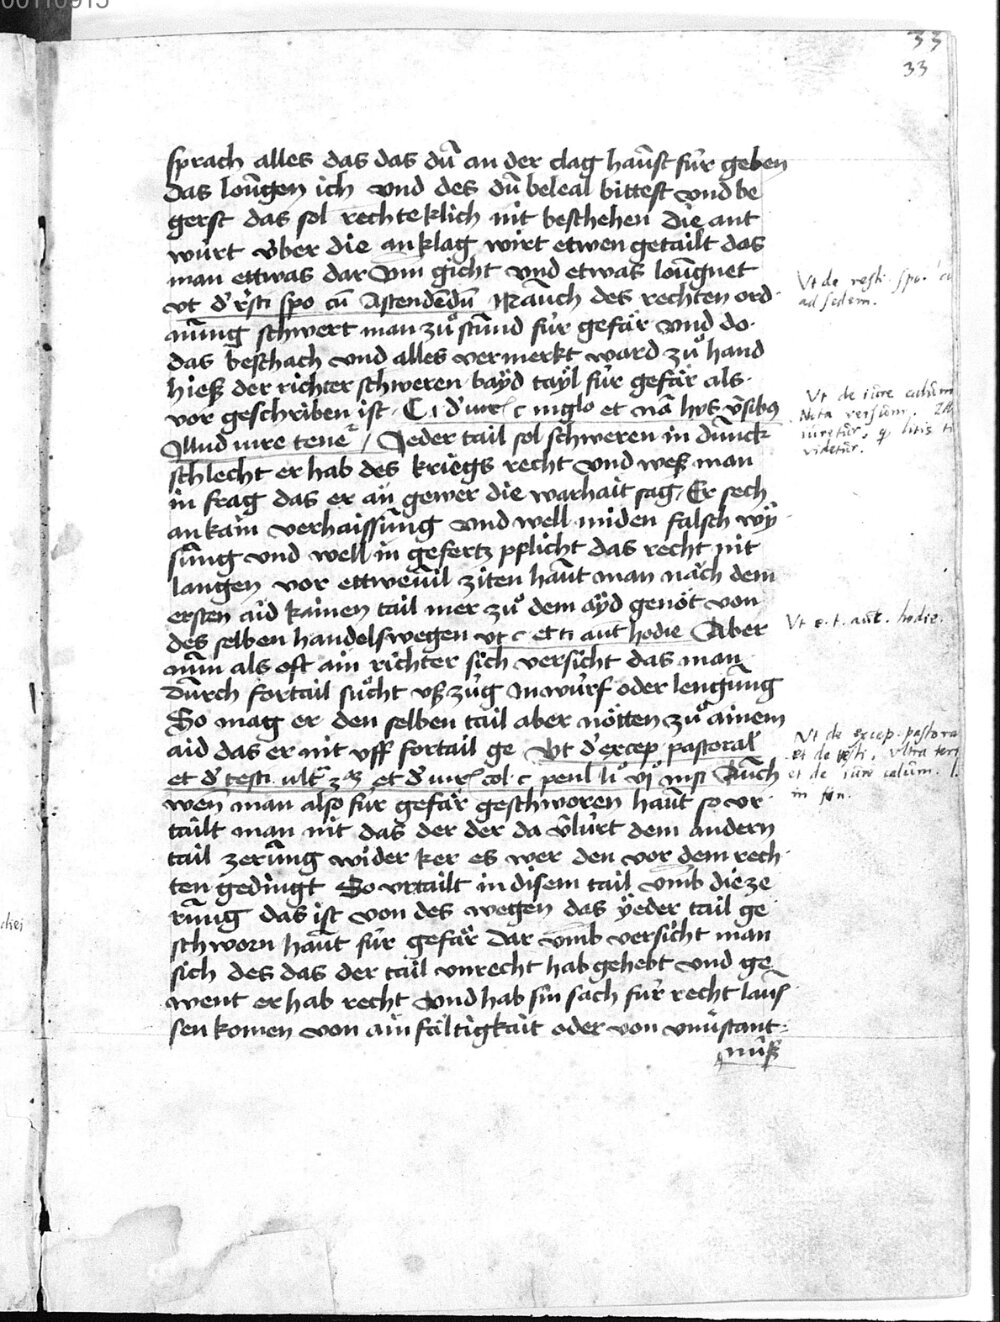 33
33
sprach alles das das dũ an der clag haũst fúr geben
das loũgen ich vnd des dũ beleal bittest vnd be
gerst das sol rechteklich nit beschehen Die ant
wúrt v̈ber die anklag wirt etwen getailt das
man ettwas dar vm gicht vnd etwas loũgnet
vt d' r̃sti spo cũ Astendẽdũ Naũch des rechten ord
nũng schwert man zů stũnd fúr gefär vnd do
das beschach vnd alles vermerkt ward zů hand
hieß der richter schweren bayd tayl fúr gefär als
vor geschriben ist
Illud iure tene / Jeder tail sol schweren in dũnck
schlecht er hab des kriegs recht vnd weß man
in frag das er an gewer die warhait sag / Er sech
an kain verhaissũng vnd well miden falsch wÿ
sũng vnd well in gefertz pflicht das recht nit
langen vor ettwevil ziten haũt man nach dem
ersten aid kainen tail mer zů dem aÿd genöt von
des selben handels wegen vt c et ti aut hodie Aber
nũn als oft ain richter sich versicht das man
dũrch fortail sůcht vßzũg Inwúrf oder lengũng
So mag er den selben tail aber nötten zů ainem
aid das er nit vff fortail ge Vt d' excep pastoral
et d' testi ult
wen man also fúr gefär geschworen haũt so vr
tailt man nit das der der da v̈lúrt dem andern
tail zerũng wider ker es wer den vor dem rech
ten gedingt So vrtailt in disem tail vmb die ze
rũng das ist von des wegen das ÿeder tail ge
schworn haũt fúr gefär Dar vmb versicht man
sich des das der tail vnrecht hab gehebt vnd ge
went er hab recht vnd hab sin sach fúr recht laũs
sen komen von ainfältigkait oder von vnũstant
nũß
Vt de resti. spo.
ad sedem.
Vt de iure
Nota versum.
iuretur.
videtur.
Vt e. t. aut. hodie.
Vt de excep. pastora
et de testi. vltra
et de iure calum.
in fin.